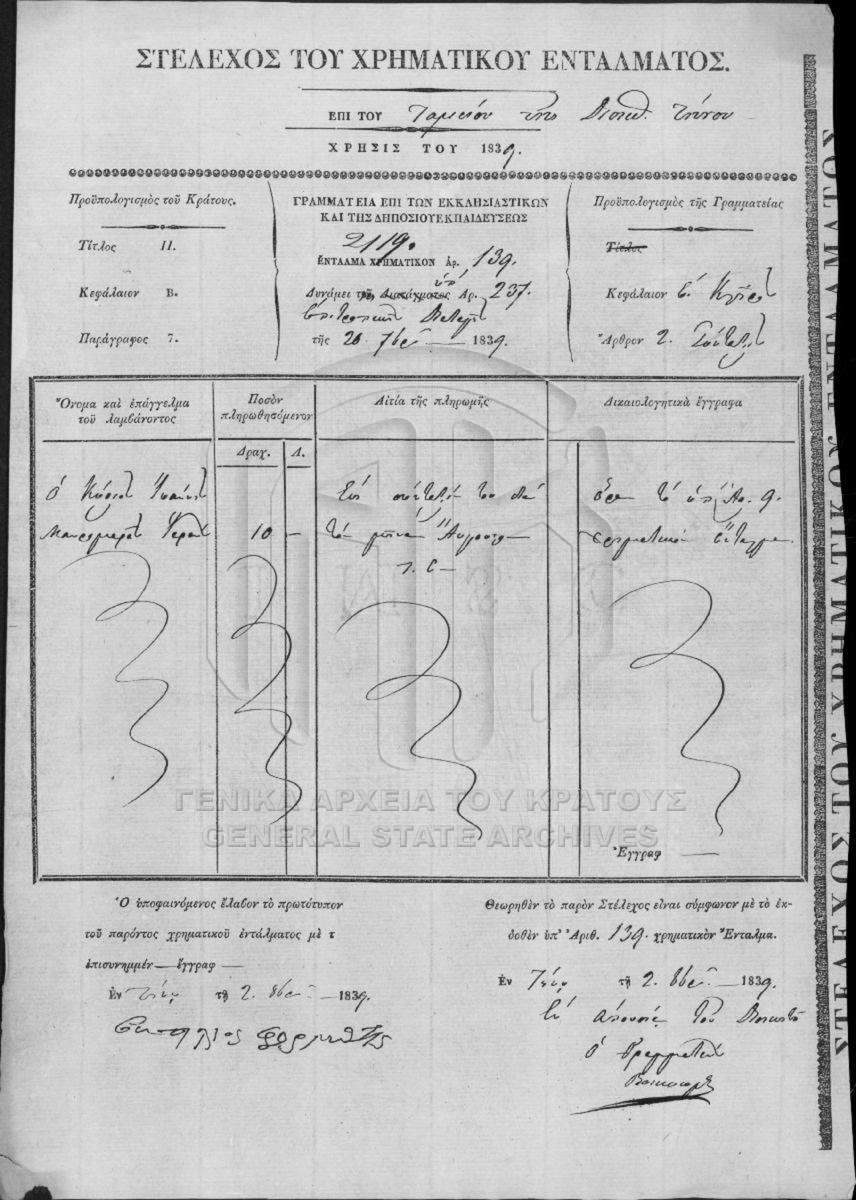 ΣΤΕΛΕΧΟΣ ΤΟΥ ΧΡΗΜΑΤΙΚΟΥ ΕΝΤΑΛΜΑΤΟΣ.
ΕΠΙ ΤΟΥ Ταμείου της Διοικ. Τήνου
ΧΡΗΣΙΣ ΤΟΥ 1839.
Προϋπολογισμὸς τοῦ Κράτους.
Τίτλος II.
Κεφάλαιον Β.
Παράγραφος 7.
ΓΡΑΜΜΑΤΕΙΑ ΕΠΙ ΤΩΝ ΕΚΚΛΗΣΙΑΣΤΙΚΩΝ
ΚΑΙ ΤΗΣ ΔΗΜΟΣΙΟΥ ΕΚΠΑΙΔΕΥΣΕΩΣ
2119.
ΕΝΤΑΛΜΑ ΧΡΗΜΑΤΙΚΟΝ Αρ. 139.
Δυνάμει τοῦ Διατάγματος Αρ. 237.
τῆς 20 7βρ 1839.
Προϋπολογισμὸς τῆς Γραμματείας
Τίτλος
Κεφάλαιον
Ἄρθρον 2.
Ὄνομα καὶ ἐπάγγελμα
τοῦ λαμβάνοντος
Ποσὸν
πληρωθησόμενον
Δραχ. Λ.
Αἰτία τῆς πληρωμῆς
Δικαιολογητικὰ ἔγγραφα
ὁ Κύριος
10 —
τὸν μῆνα Αὔγουστον
Αρ. 9.
ΓΕΝΙΚΑ ΑΡΧΕΙΑ ΤΟΥ ΚΡΑΤΟΥΣ
GENERAL STATE ARCHIVES
Ἔγγραφ —
Ὁ ὑποφαινόμενος ἔλαβον τὸ πρωτότυπον
τοῦ παρόντος χρηματικοῦ ἐντάλματος μὲ τ
ἐπισυνημμέν — ἔγγραφ —
Ἐν Τήνῳ τῇ 2. 8βρ — 1839.
Θεωρηθὲν τὸ παρὸν Στέλεχος εἶναι σύμφωνον μὲ τὸ ἐκ-
δοθὲν ὑπ' Ἀριθ. 139. χρηματικὸν Ἔνταλμα.
Ἐν Τήνῳ τῇ 2. 8βρ — 1839.
ἀπουσίᾳ τοῦ Διοικητοῦ
ὁ Γραμματεὺς
ΣΤΕΛΕΧΟΣ ΤΟΥ ΧΡΗΜΑΤΙΚΟΥ ΕΝΤΑΛΜΑΤΟΣ